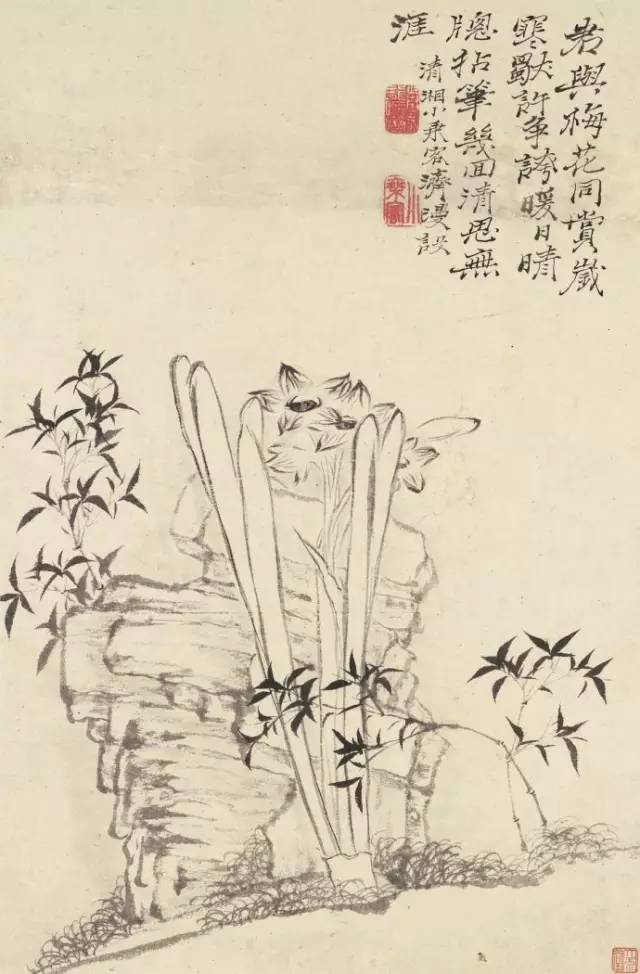 君與梅花同賞歲
寒默許爭誇暖日晴
牕拈筆幾回清思無
涯
清湘小乘客濟漫設